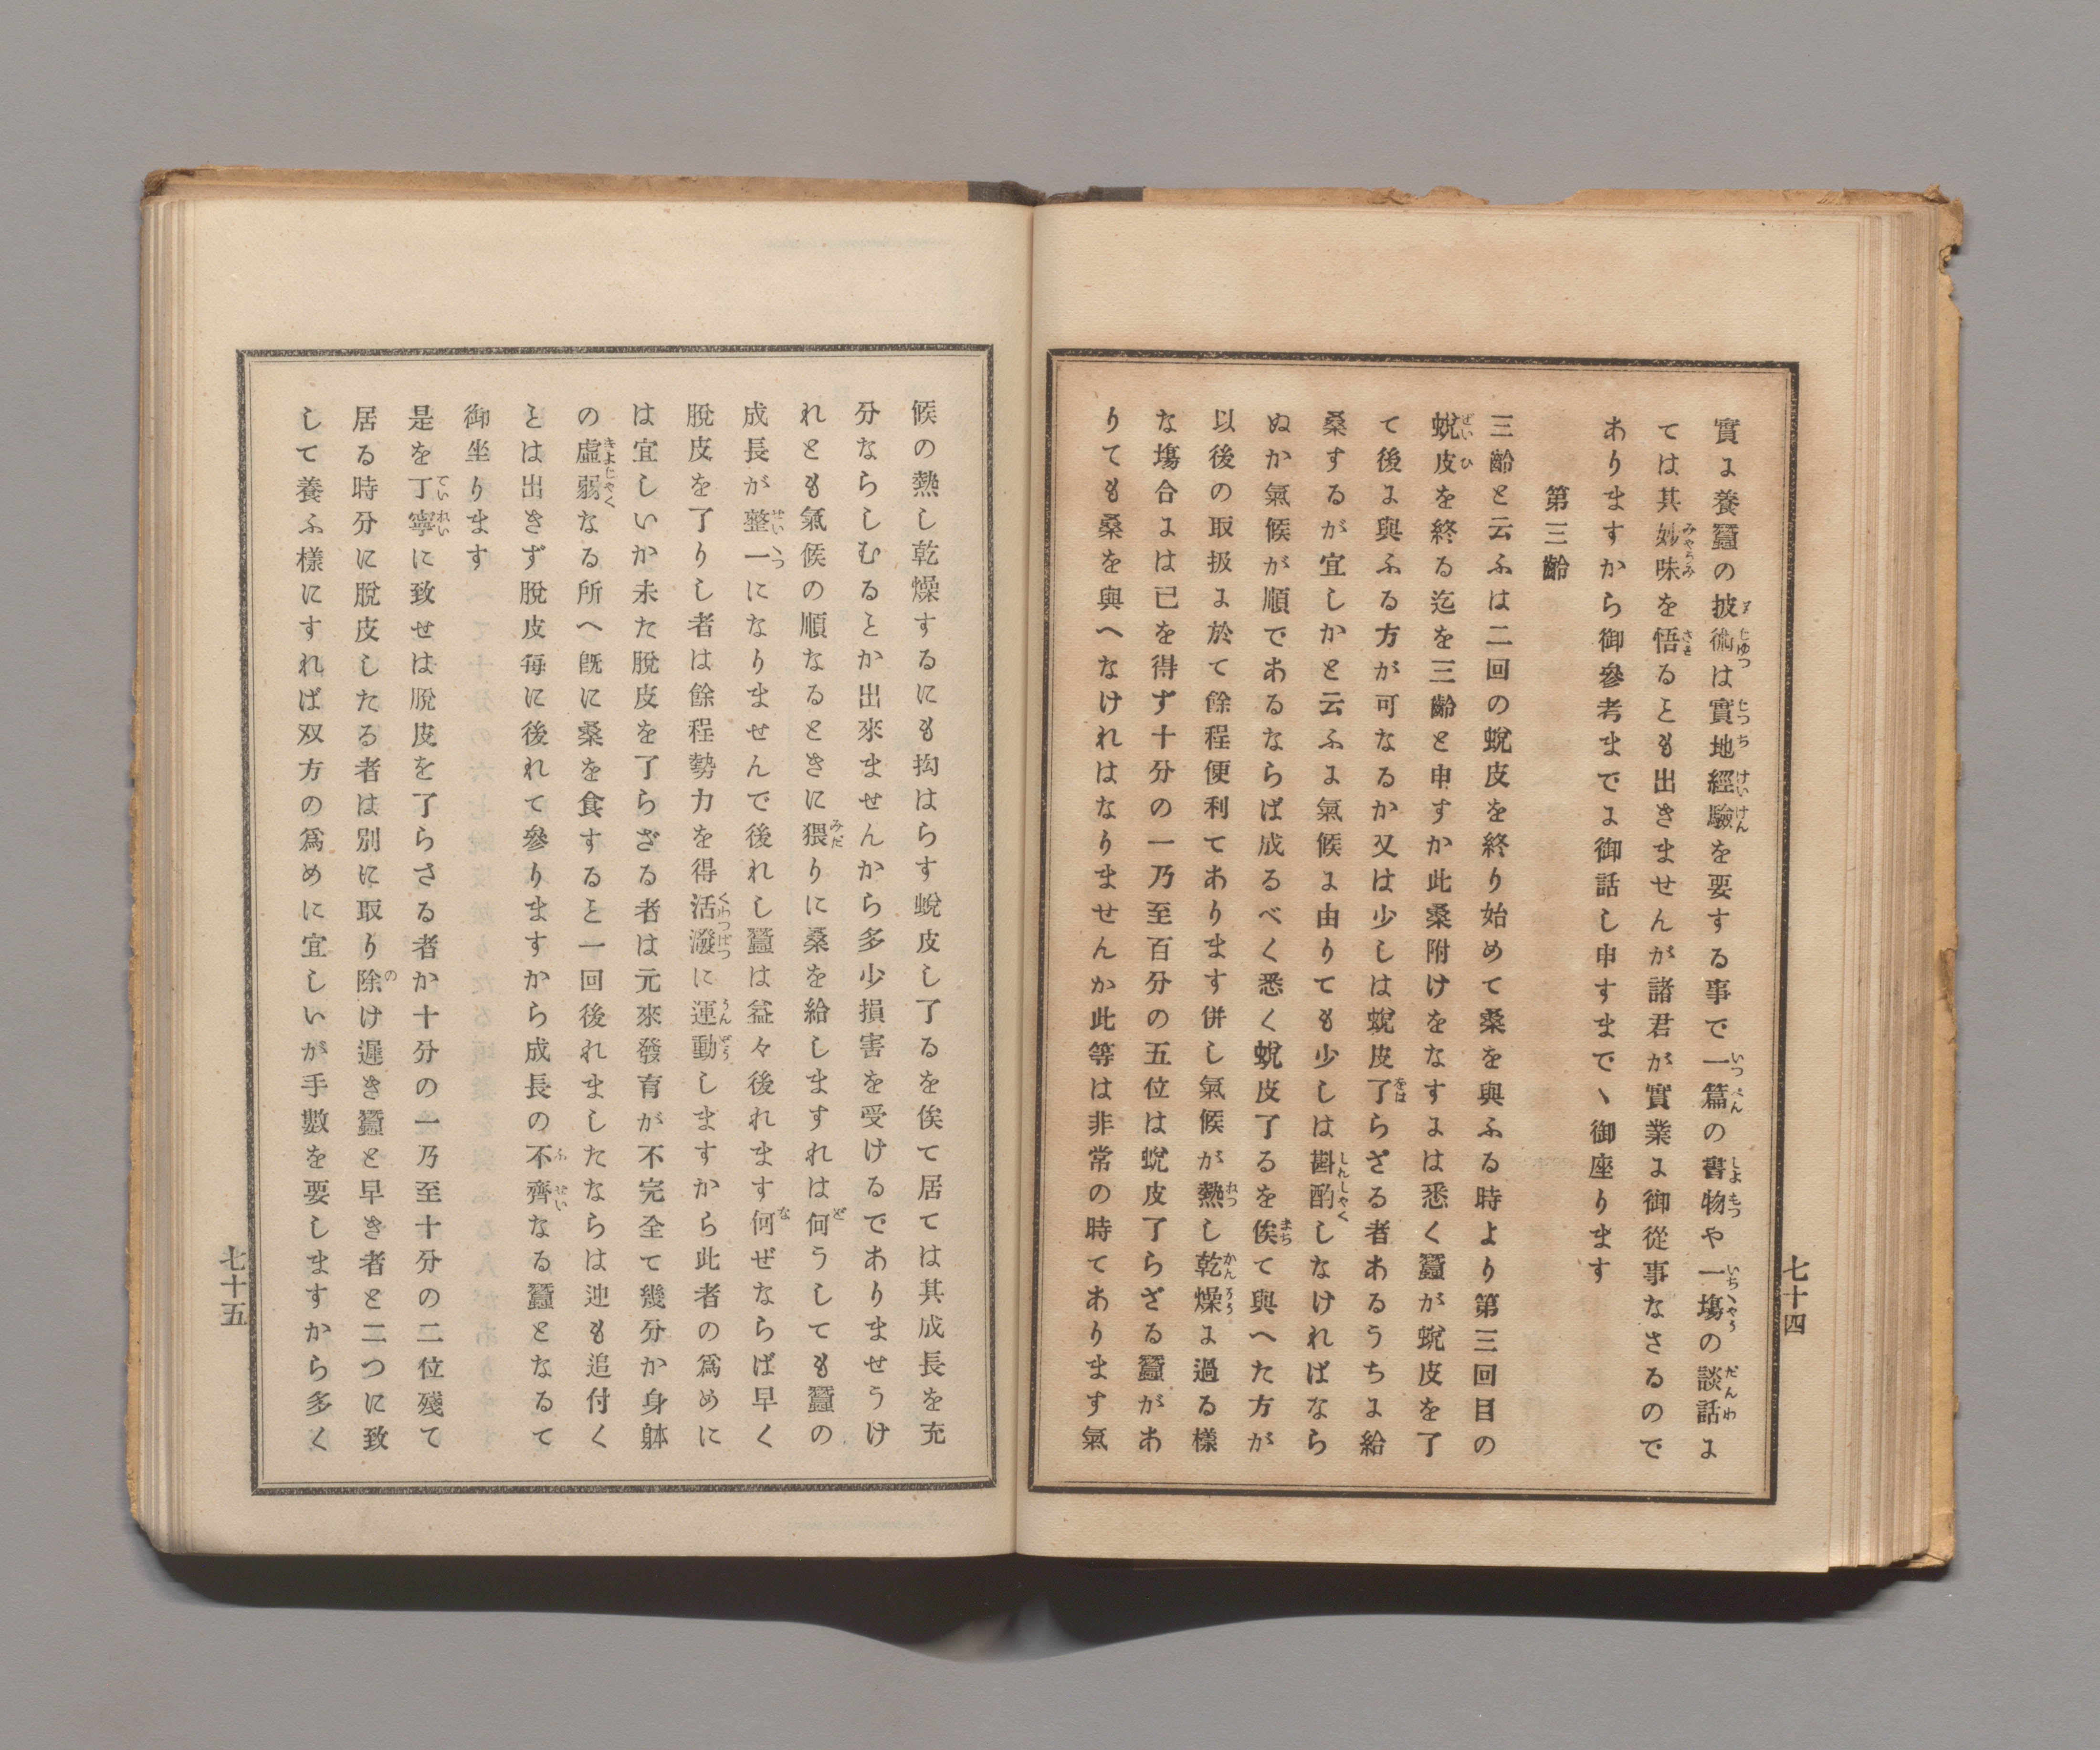 實に養蠶の披術は實地經驗を要する事で一篇の書物や一塲の談話に
ては其妙味を悟るとも出きませんが諸君が實業に御從事なさるので
ありますから御參考までに御話し申すまでヽ御座ります
第三齡
三齡と云ふは二回の蛻皮を終り始めて桑を與ふる時より第三回目の
蛻皮を終る迄を三齡と申すか此桑附けをなすには悉く蠶が蛻皮を了
て後に與ふる方が可なるか又は少しは蛻皮了らざる者あるうちに給
桑するが宜しかと云ふに氣候に由りても少しは斟酌しなければなら
ぬか氣候が順であるならば成るべく悉く蛻皮了るを俟て與へた方が
以後の取扱に於て餘程便利てあります併し氣候が熱し乾燥に過る樣
な塲合には已を得ず十分の一乃至百分の五位は蛻皮了らざる蠶があ
りても桑を與へなけれはなりませんか此等は非常の時てあります氣
七十四
候の熱し乾燥するにも拘はらす蛻皮し了るを俟て居ては其成長を充
分ならしむるとか出來ませんから多少損害を受けるでありませうけ
れとも氣候の順なるときに猥りに桑を給しますれは何うしても蠶の
成長が整一になりませんで後れし蠶は益々後れます何ぜならば早く
脫皮を了りし者は餘程勢力を得活潑に運動しますから此者の爲めに
は宜しいか未た脫皮を了らざる者は元來發育が不完全て幾分か身躰
の虛弱なる所へ旣に桑を食すると一回後れましたならは迚も追付く
とは出きず脫皮每に後れて參りますから成長の不齊なる蠶となるて
御坐ります
是を丁寧に致せは脫皮を了らさる者か十分の一乃至十分の二位殘て
居る時分に脫皮したる者は別に取り除け遲き蠶と早き者と二つに致
して養ふ樣にすれば双方の爲めに宜しいが手數を要しますから多く
七十五